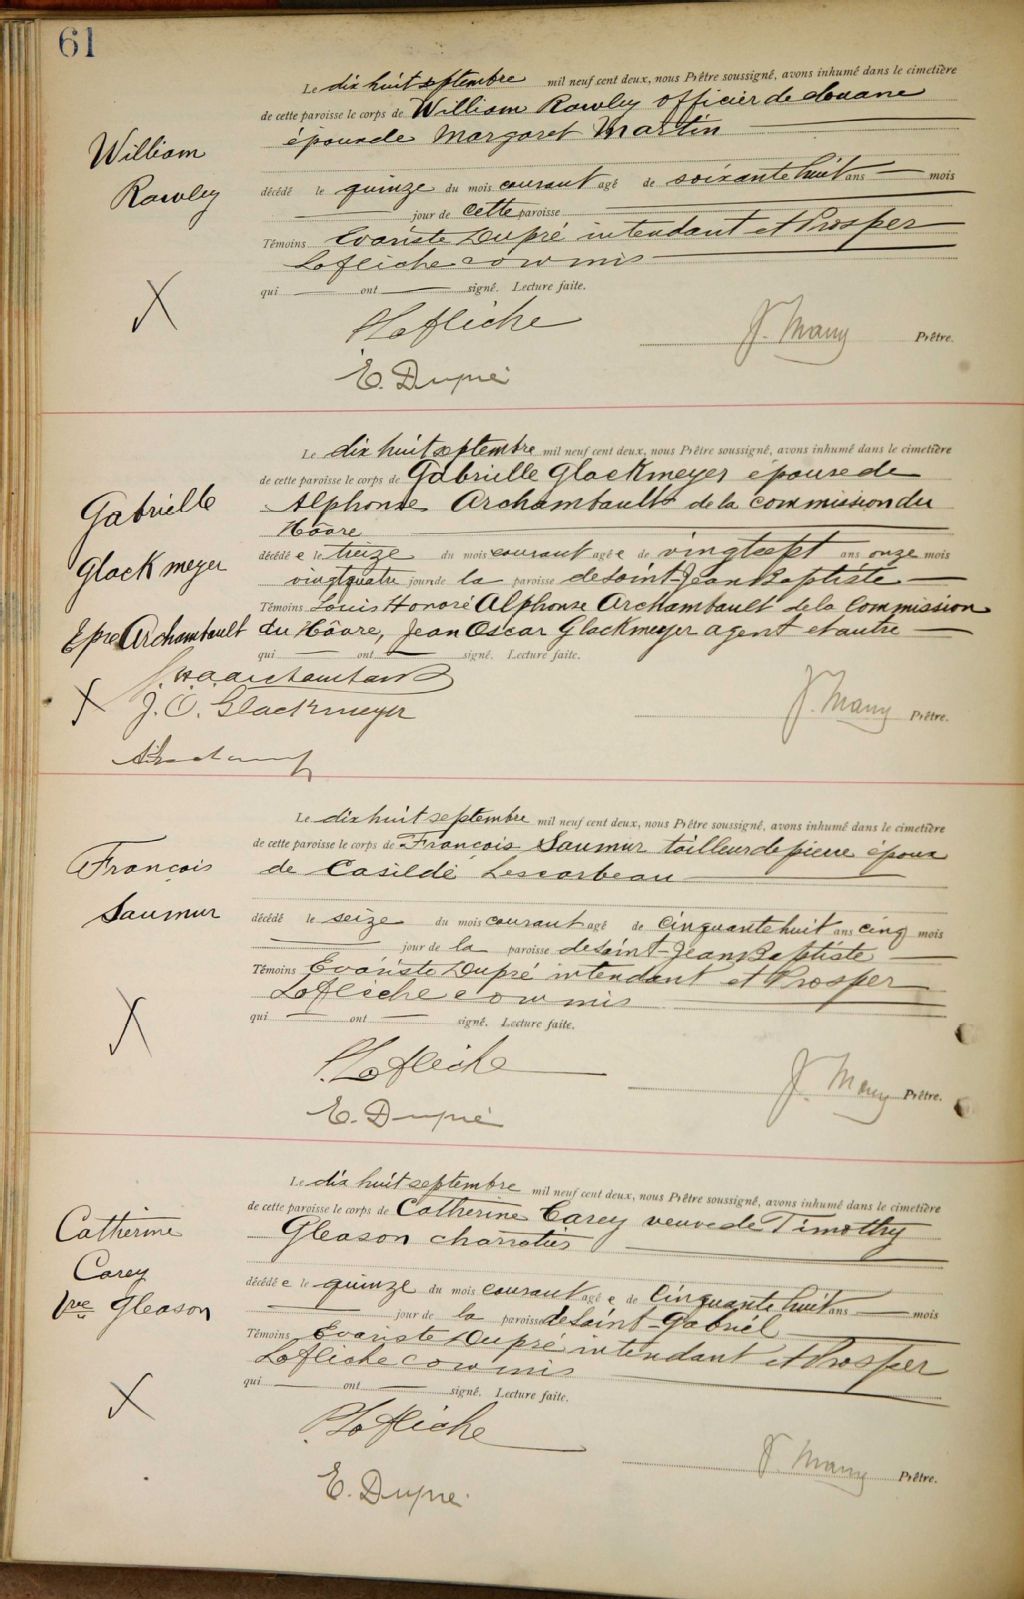 61
Le dix huit septembre mil neuf cent deux, nous Prêtre soussigné, avons inhumé dans le cimetière
de cette paroisse le corps de William Rowley officier de douane
époux de Margaret Martin
William
Rowley
décédé le quinze du mois courant agé de soixante huit ans mois
jour de cette paroisse
Témoins Evariste Dupré intendant et Prosper
Lafleche commis
qui ont signé. Lecture faite.
P. Lafleche
J. Many Prêtre.
E. Dupré
Le dix huit septembre mil neuf cent deux, nous Prêtre soussigné, avons inhumé dans le cimetière
de cette paroisse le corps de Gabrielle Glackmeyer épouse de
Alphonse Archambault de la Commission du
Hâvre
Gabrielle
Glackmeyer
Epse Archambault
décédé e le treize du mois courant agé e de vingt sept ans onze mois
vingtquatre jour de la paroisse de Saint-Jean Baptiste
Témoins Louis Honoré Alphonse Archambault de la Commission
du Hâvre, Jean Oscar Glackmeyer agent et autre
qui ont signé. Lecture faite.
J. O. Glackmeyer
J. Many Prêtre.
Le dix huit septembre mil neuf cent deux, nous Prêtre soussigné, avons inhumé dans le cimetière
de cette paroisse le corps de François Saumur tailleur de pierre époux
de Casildé Lescarbeau
François
Saumur
décédé le seize du mois courant agé de cinquante huit ans cinq mois
jour de la paroisse de Saint-Jean Baptiste
Témoins Evariste Dupré intendant et Prosper
Lafleche commis
qui ont signé. Lecture faite.
P. Lafleche
J. Many Prêtre.
E. Dupré
Le dix huit septembre mil neuf cent deux, nous Prêtre soussigné, avons inhumé dans le cimetière
de cette paroisse le corps de Catherine Carey veuve de Timothy
Gleason charretier
Catherine
Carey
Vve Gleason
décédé e le quinze du mois courant agé e de Cinquante huit ans mois
jour de la paroisse de Saint-Gabriel
Témoins Evariste Dupré intendant et Prosper
Lafleche commis
qui ont signé. Lecture faite.
P. Lafleche
J. Many Prêtre.
E. Dupré